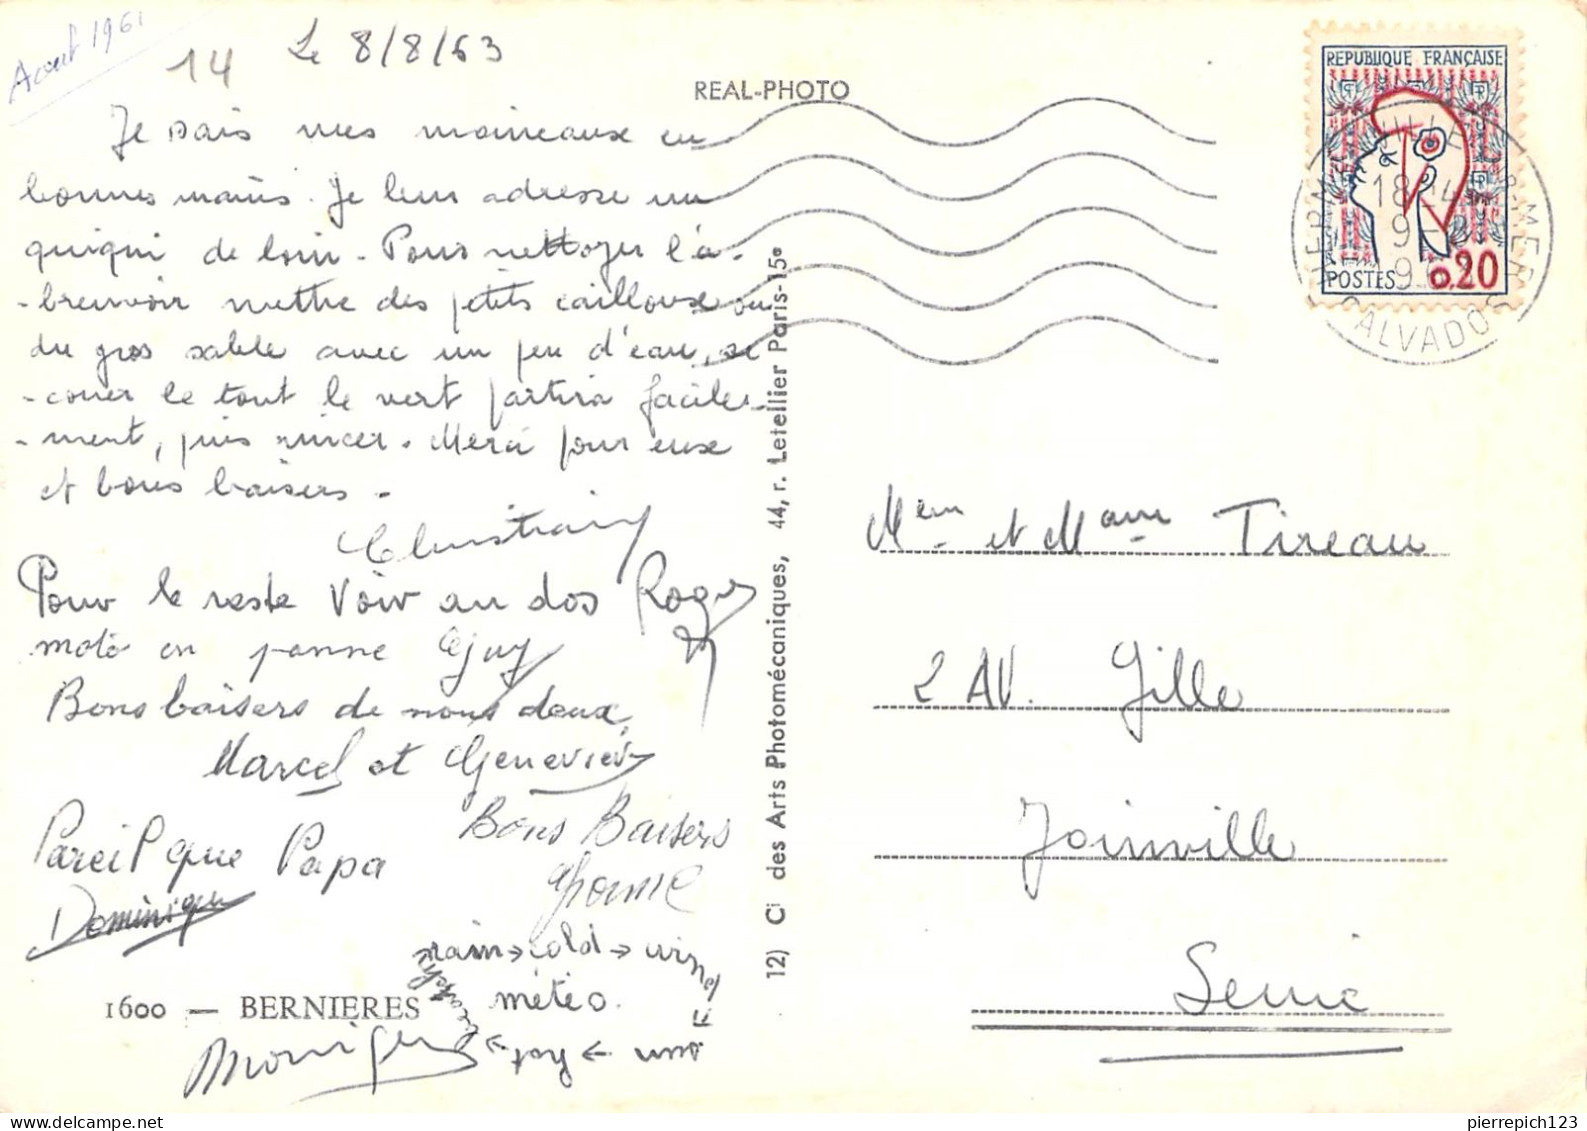 Aout 1961
14
Le 8/8/63
REAL-PHOTO
Je sais mes moineaux en
bonnes mains. Je leur adresse un
quiqui de loin. Pour nettoyer l'a-
-breuvoir mettre des petits cailloux ou
du gros sable avec un peu d'eau, se
-couer le tout le vert partira facile-
-ment, puis rincer. Merci pour eux
et bons baisers.
Christian
Pour le reste voir au dos Roger
moto en panne Guy
Bons baisers de nous deux,
Marcel et Geneviève
Pareil que Papa
Dominique
Bons Baisers
rain → cold → wind
météo.
sun → hot →
1600 — BERNIERES
Monique
12) Cie des Arts Photomécaniques, 44, r. Letellier Paris-15e
REPUBLIQUE FRANÇAISE
POSTES 0,20
BERNIERES S MER
18 24
9-8
CALVADOS
Mem et Mam Tireau
2 AV. Gille
Joinville
Seine
pierrepich123